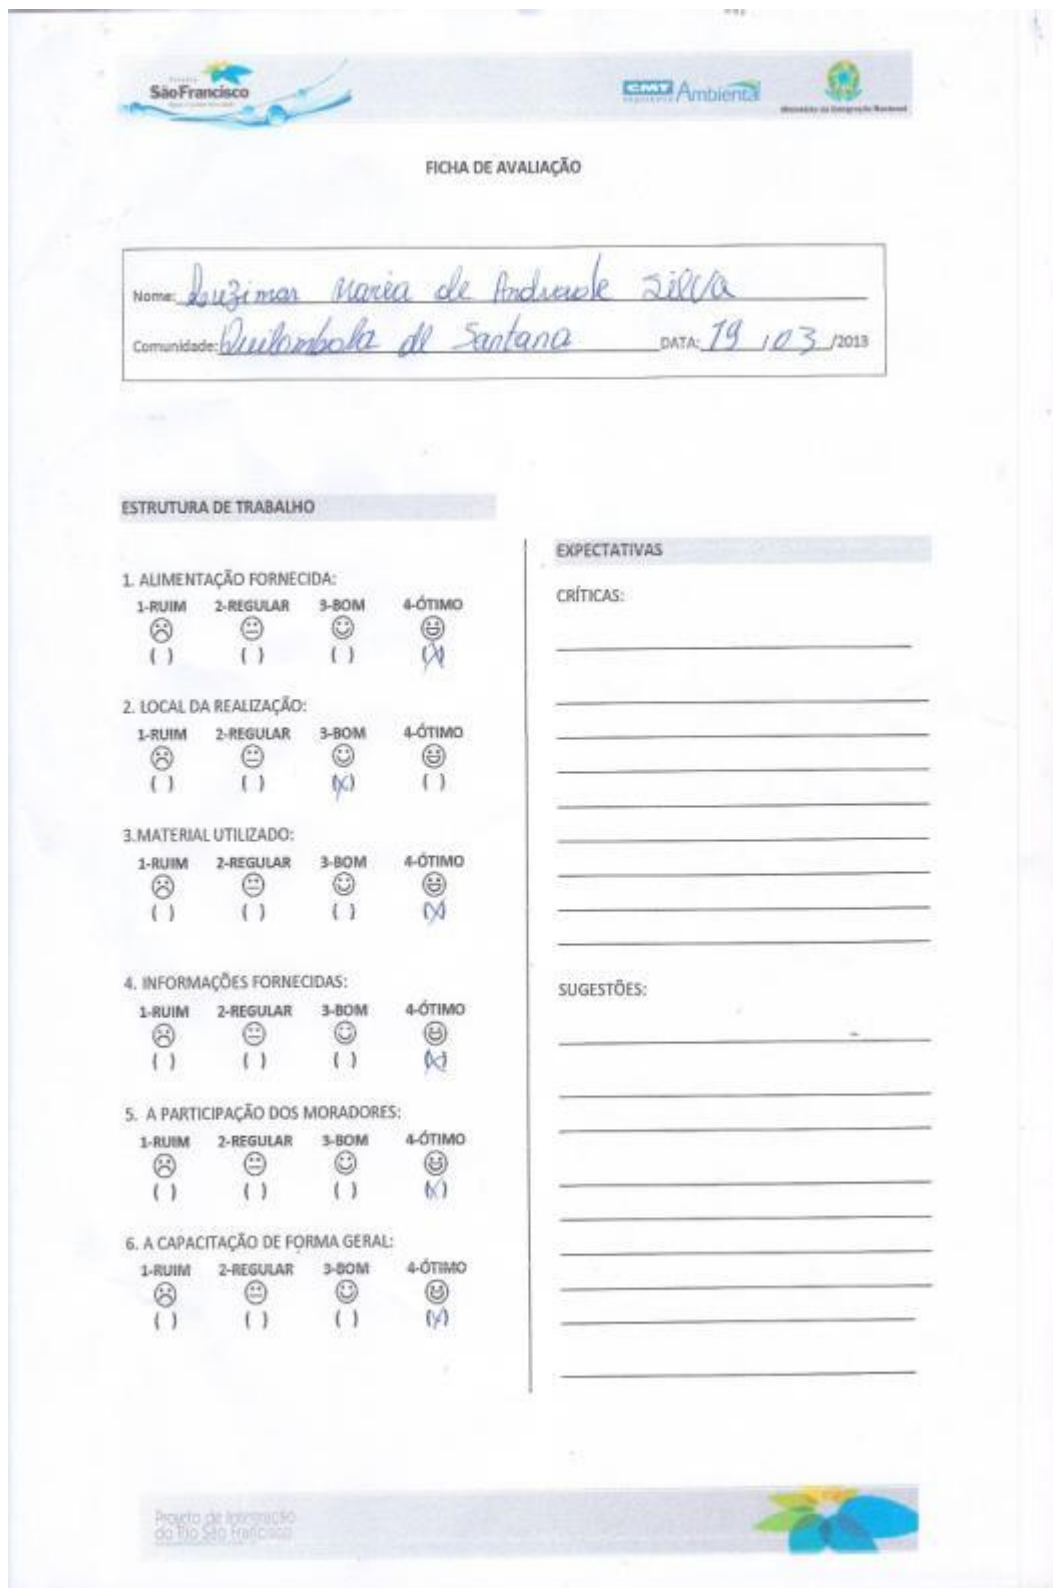 São Francisco
CMT Ambiental
Ministério da Integração Nacional
FICHA DE AVALIAÇÃO
Nome: Luzimar Maria de Andrade Silva
Comunidade: Quilombola de Santana DATA: 19 / 03 /2013
ESTRUTURA DE TRABALHO
1. ALIMENTAÇÃO FORNECIDA:
1-RUIM 2-REGULAR 3-BOM 4-ÓTIMO
( ) ( ) ( ) (X)
2. LOCAL DA REALIZAÇÃO:
1-RUIM 2-REGULAR 3-BOM 4-ÓTIMO
( ) ( ) (X) ( )
3.MATERIAL UTILIZADO:
1-RUIM 2-REGULAR 3-BOM 4-ÓTIMO
( ) ( ) ( ) (X)
4. INFORMAÇÕES FORNECIDAS:
1-RUIM 2-REGULAR 3-BOM 4-ÓTIMO
( ) ( ) ( ) (X)
5. A PARTICIPAÇÃO DOS MORADORES:
1-RUIM 2-REGULAR 3-BOM 4-ÓTIMO
( ) ( ) ( ) (X)
6. A CAPACITAÇÃO DE FORMA GERAL:
1-RUIM 2-REGULAR 3-BOM 4-ÓTIMO
( ) ( ) ( ) (X)
EXPECTATIVAS
CRÍTICAS:
SUGESTÕES:
Projeto de Integração
do Rio São Francisco